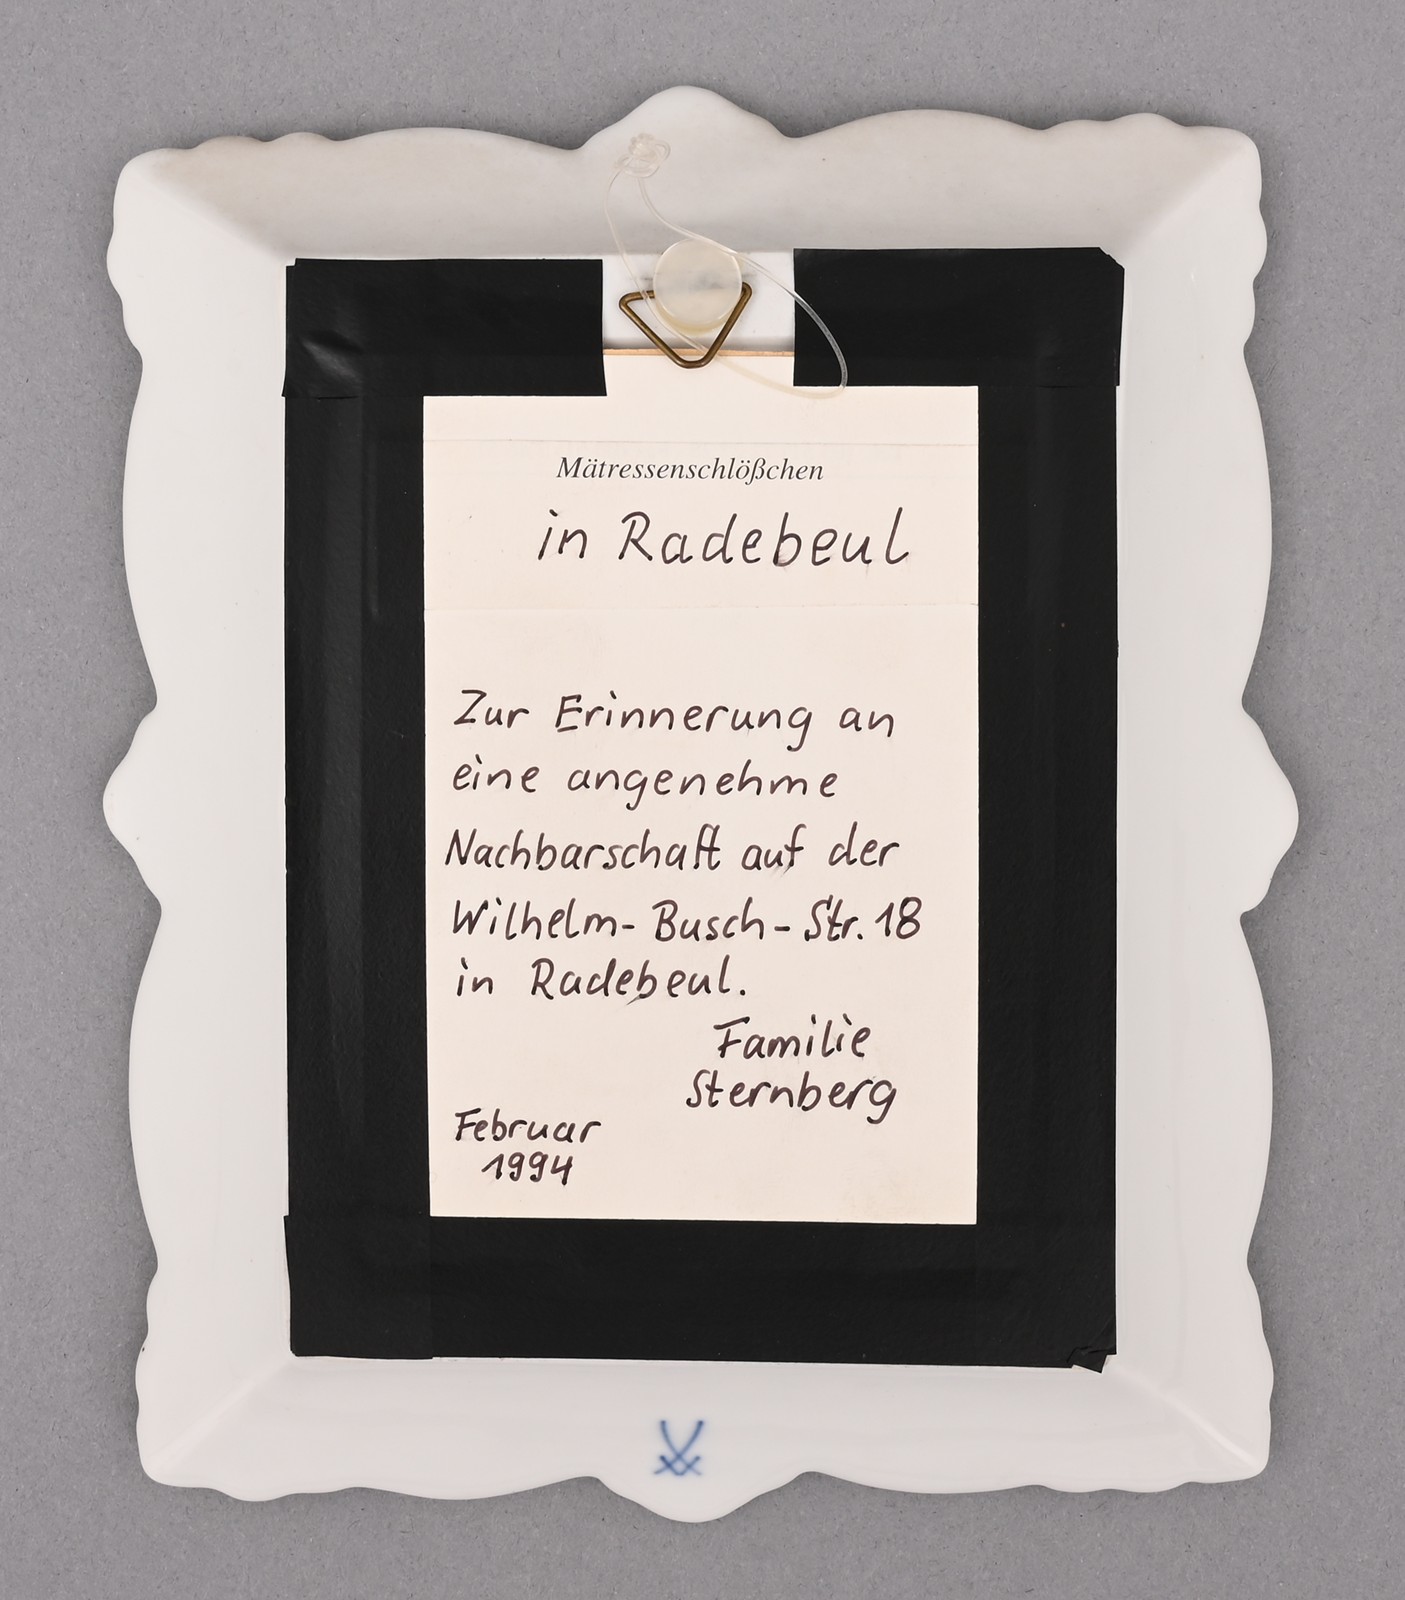 Mätressenschlößchen
in Radebeul
Zur Erinnerung an
eine angenehme
Nachbarschaft auf der
Wilhelm-Busch-Str. 18
in Radebeul.
Familie
Sternberg
Februar
1994